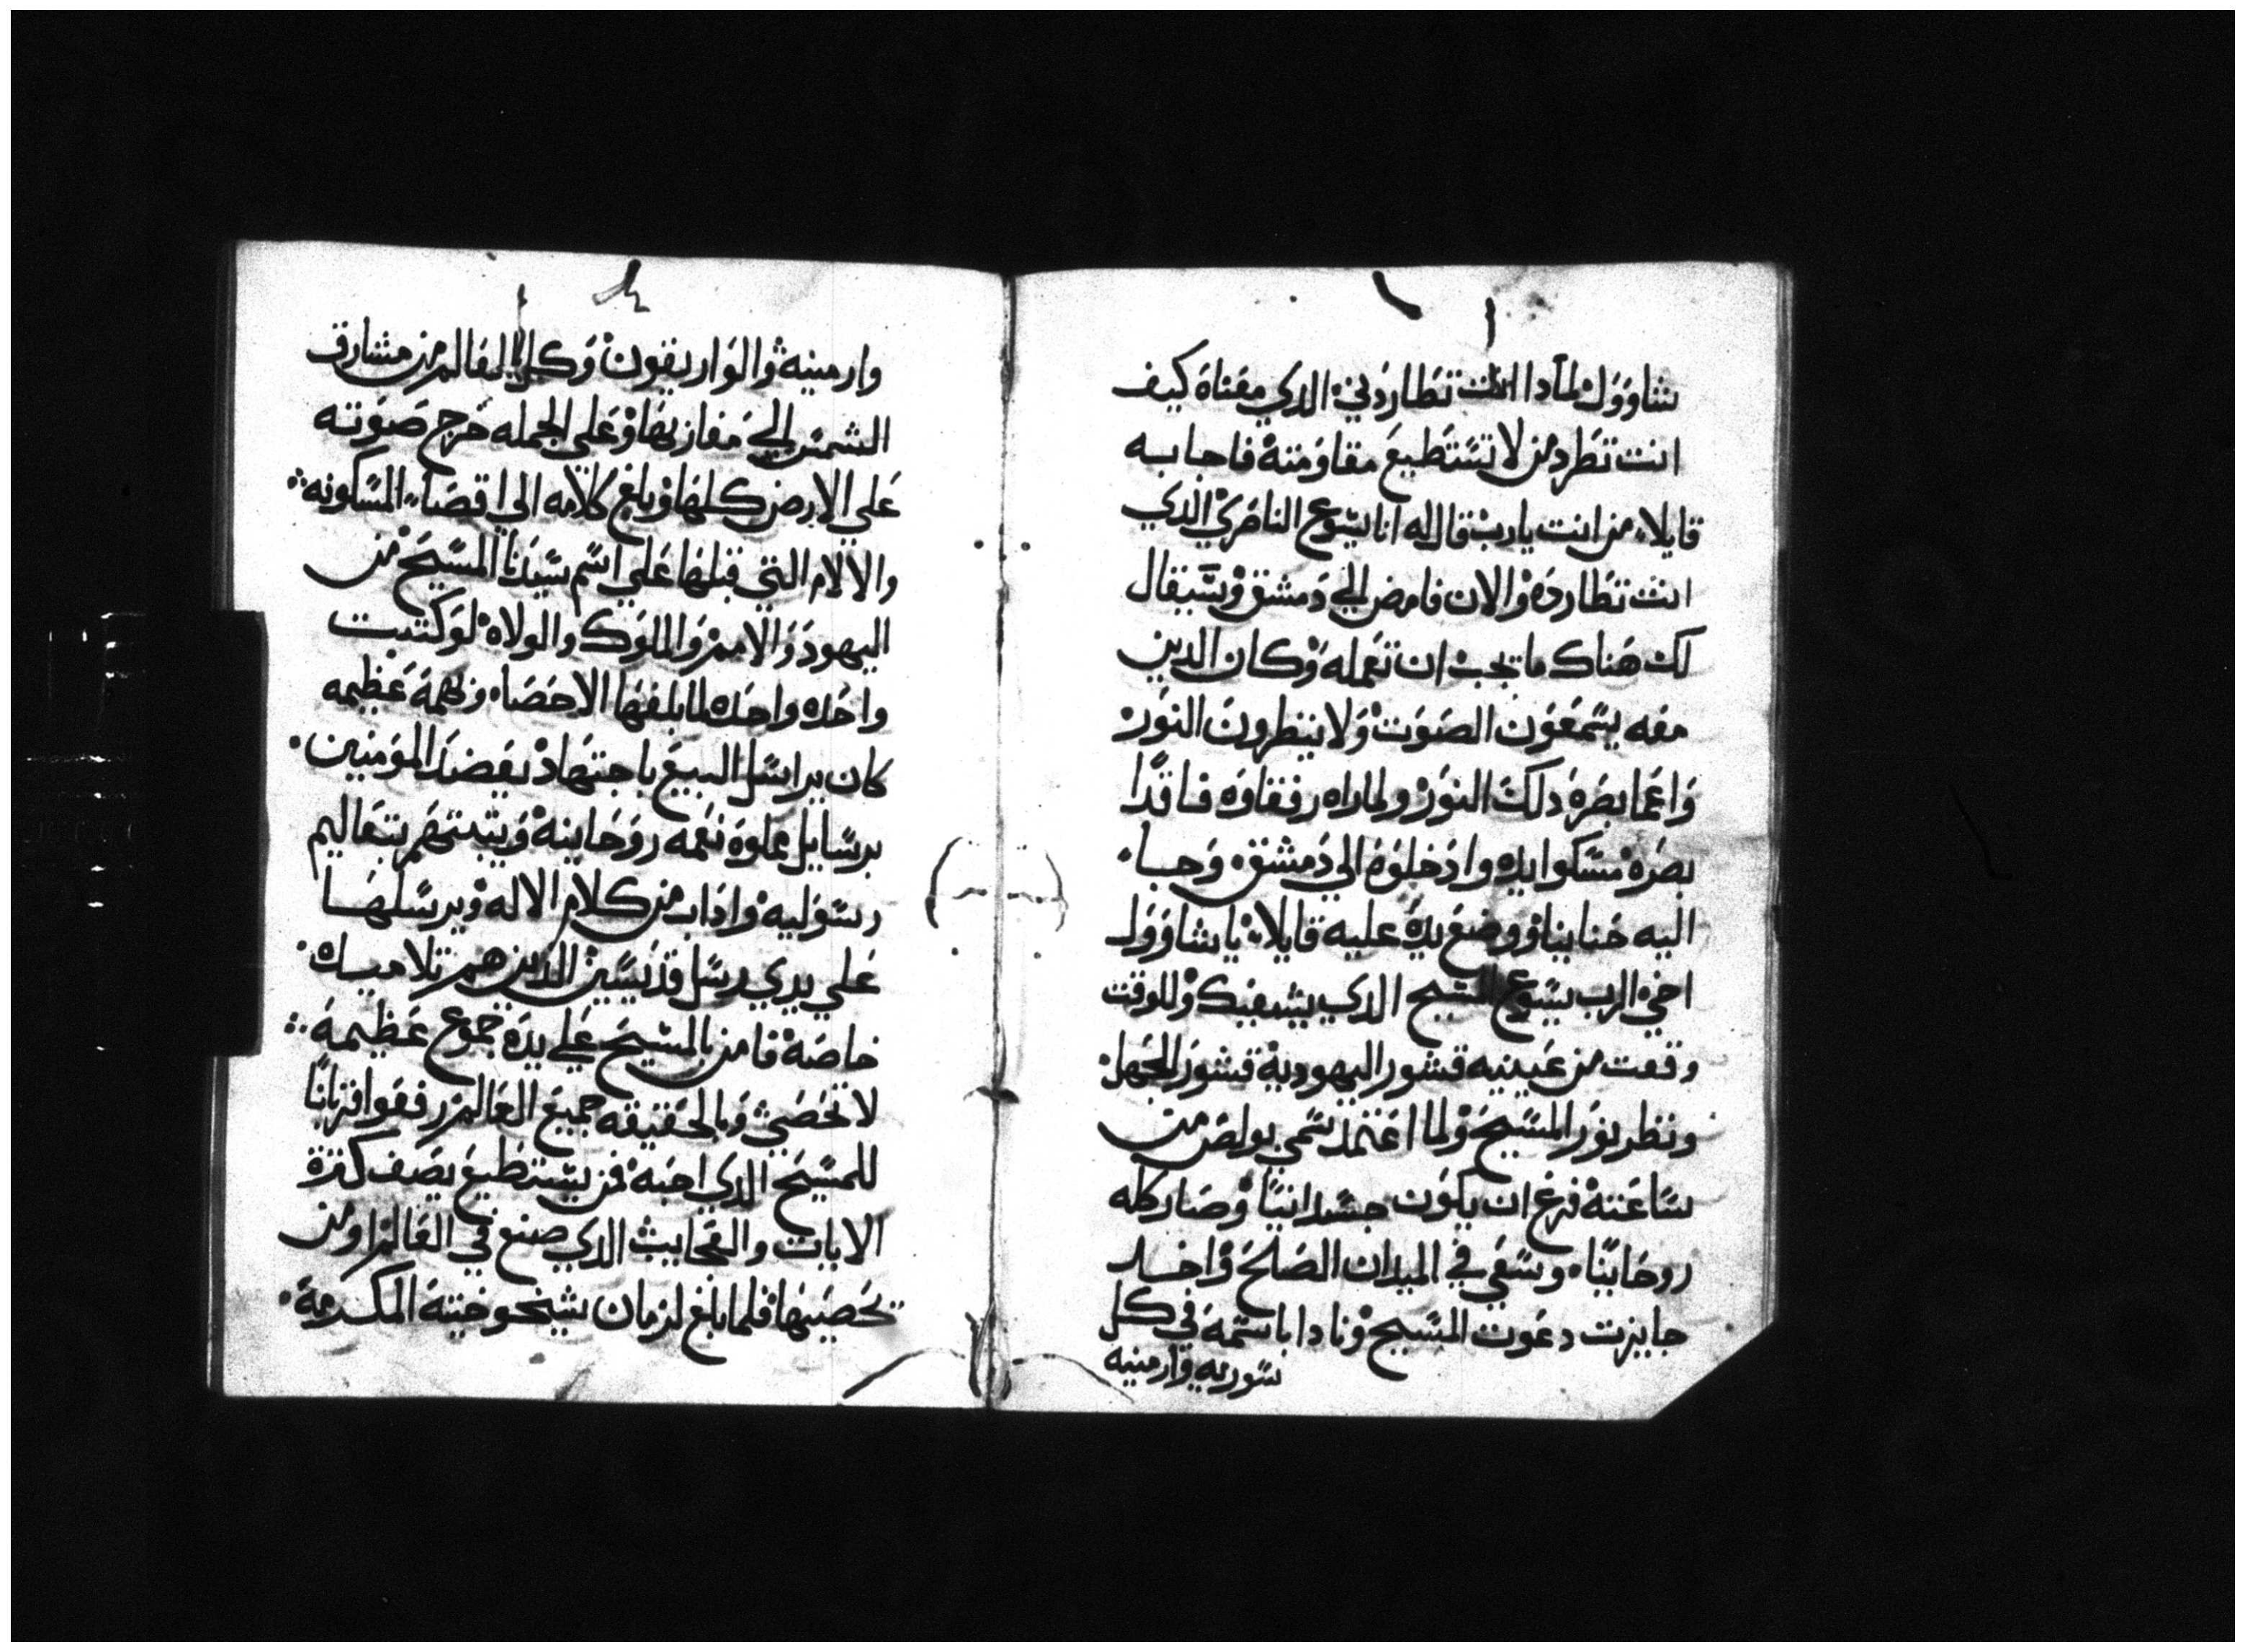 شاوول لمادا انت تطاردني الدي معناه كيف
انت تطرد من لا تستطيع مقاومته فاجابه
قايلا من انت يارب قال له انا يسوع الناصري الدي
انت تطارده والان فامض الي دمشق وسيقال
لك هناك ما يجب ان تعمله وكان الدين
معه يسمعون الصوت ولا ينظرون النور
واعما بصره دلك النور ولما راه رفقاوه فاقدا
بصره مسكوا يده وادخلوه الي دمشق وجاء
اليه حنانيا ووضع يده عليه قايلا يا شاوول
اخي الرب يسوع المسيح الدي يشفيك وللوقت
وقعت من عينيه قشور اليهودية قشور الجهل
ونظر نور المسيح ولما اعتمد سمي بولص من
ساعته فرغ ان يكون جسدانيا وصار كله
روحانيا وسعي في الميدان الصلح واخد
جايزت دعوت المسيح ونادا باسمه في كل
سوريه وارمنيه
وارمينيه والواريقون وكل العالم من مشارق
الشمس الي مغاربها وعلي الجمله خرج صوته
علي الارض كلها وبلغ كلامه الي اقصاء المسكونه
والالام التي قبلها علي اسم سيدنا المسيح من
اليهود والامم والملوك والولاه لو كتبت
واحده واحده لما بلغها الاحصاء وبهمة عظيمه
كان يراسل البيع باجتهاد يعضد المومنين
برسايل مملوه نعمه روحانية ويتبتهم بتعاليم
رسوليه واداب من كلام الاله ويرسلها
علي يدي رسل قديسين الدين هم تلاميده
خاصة فامن بالمسيح علي يده جموع عظيمة
لا تحصي وبالحقيقه جميع العالم رفعوا قربانا
للمسيح الدي احبه فمن يستطيع يصف كثرة
الايات والعجايب الدي صنع في العالم او من
يحصيها فلما بلغ لزمان شيخوخيته المكرمة